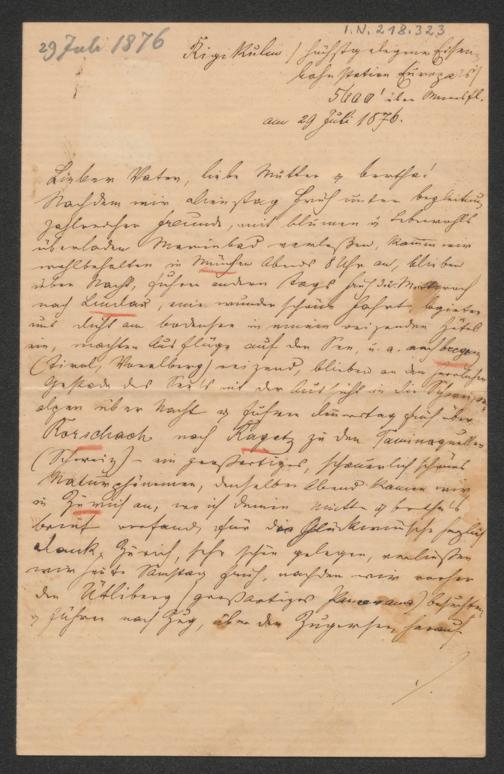 I.N. 218.323
29 Juli 1876
Rigi Kulm / höchstgelegene Eisen-
bahnstation Europas /
5600' über Meeresfl.
am 29 Juli 1876.
Lieber Vater, liebe Mutter & Bertha!
Nachdem wir Dienstag früh unter Begleitung
zahlreicher Freunde, mit Blumen u Lebewohls
überladen Marienbad verließen, kamen wir
wohlbehalten in München Abends 8 Uhr an, blieben
über Nacht, fuhren andern Tags früh
nach Lindau, eine wunderschöne Fahrt, logirten
uns dicht am Bodensee in einem reizenden Hotel
ein, machten Ausflüge auf den See, u. a. nach Bregenz
(Tirol, Vorarlberg) reizend, blieben an den herrlichen
Gestade des See's mit der Aussicht in die Schweizer
alpen über Nacht & fuhren Donnerstag früh über
Rorschach nach Ragatz zu den Taminaquellen
(Schweiz) – ein großartiges, schauerlich schönes
Naturphänomen, denselben Abend kamen wir
in Zürich an, wo ich deinen Mutter & Berthas
Brief vorfand, für die Glückwünsche herzlich
Dank. Zürich, sehr schön gelegen, verließen
wir heute Samstag früh, nachdem wir vorher
den Ütliberg (großartiges Panorama) besuchten,
& fuhren nach Zug, über den Zugersee, herauf
./.